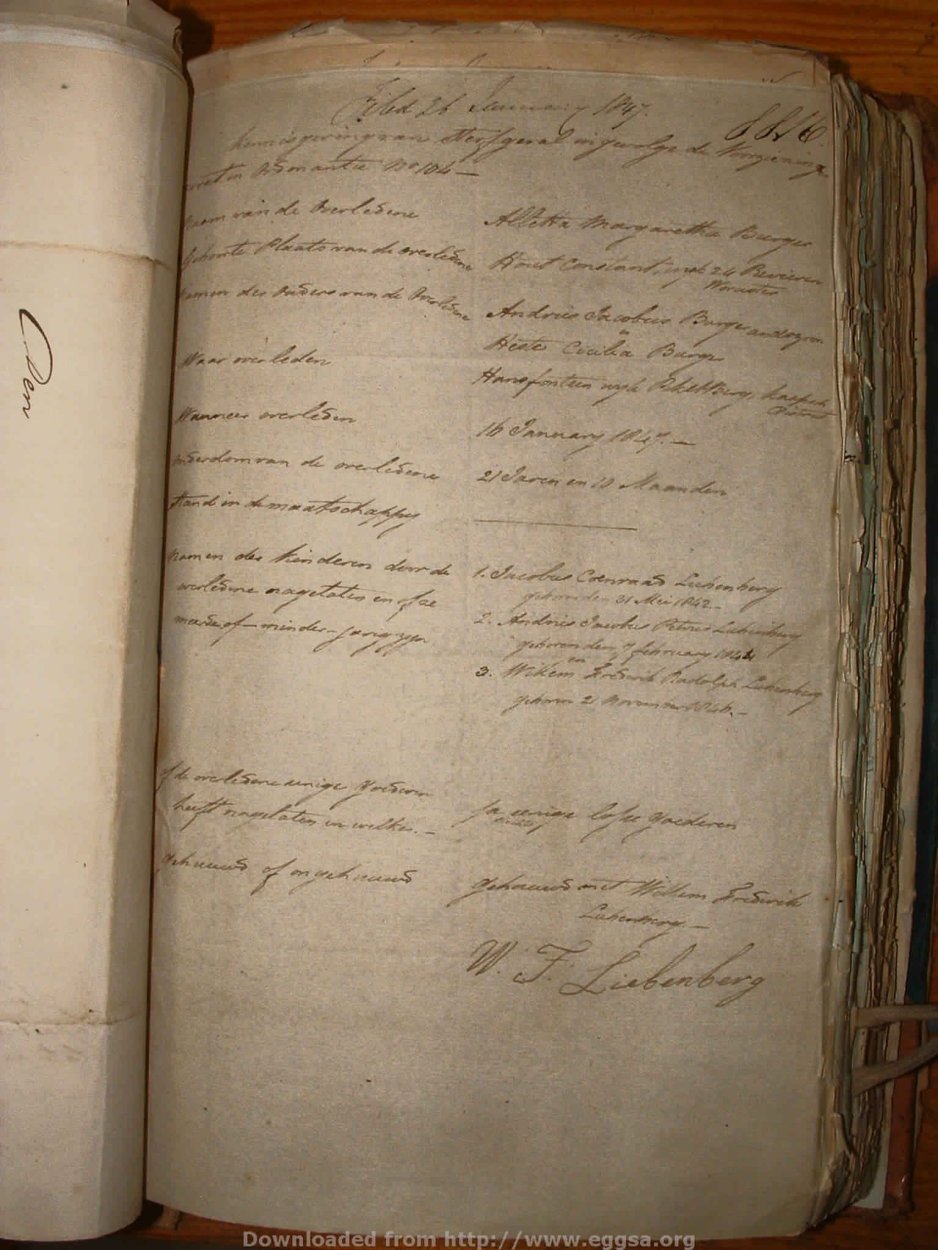 Filed 26 January 1847.
8816.
kennisgeving van Sterfgeval ingevolge de Voorziening
Ordonnantie No 104 —
Naam van de Overledene
Alletta Margaretha Burger
Geboorte Plaats van de overledene
Hout Constant, wyk 24 Rivieren
Worcester
Namen der Ouders van de Overledene
Andries Jacobus Burger
en
Hester Cecilia Burger
Waar overleden
Hansfontein wyk
Wanneer overleden
16 January 1847. —
Ouderdom van de overledene
21 Jaren en 10 Maanden
Stand in de maatschappy
Namen der kinderen door de
overledene nagelaten en of ze
meerder of minder jarig zyn
1. Jacobus Coenraad Liebenberg
geboren den 31 Mei 1842 —
2. Andries Jacobus Petrus Liebenberg
geboren den 7 february 1844
en
3. Willem Frederik Rudolph Liebenberg
geboren 21 November 1846. —
Of de overledene eenige Goederen
heeft nagelaten en welke. —
Ja eenige losse goederen
gehuwd of ongehuwd
Gehuwd met Willem Frederik
Liebenberg. —
W. F. Liebenberg
Den
Downloaded from http://www.eggsa.org